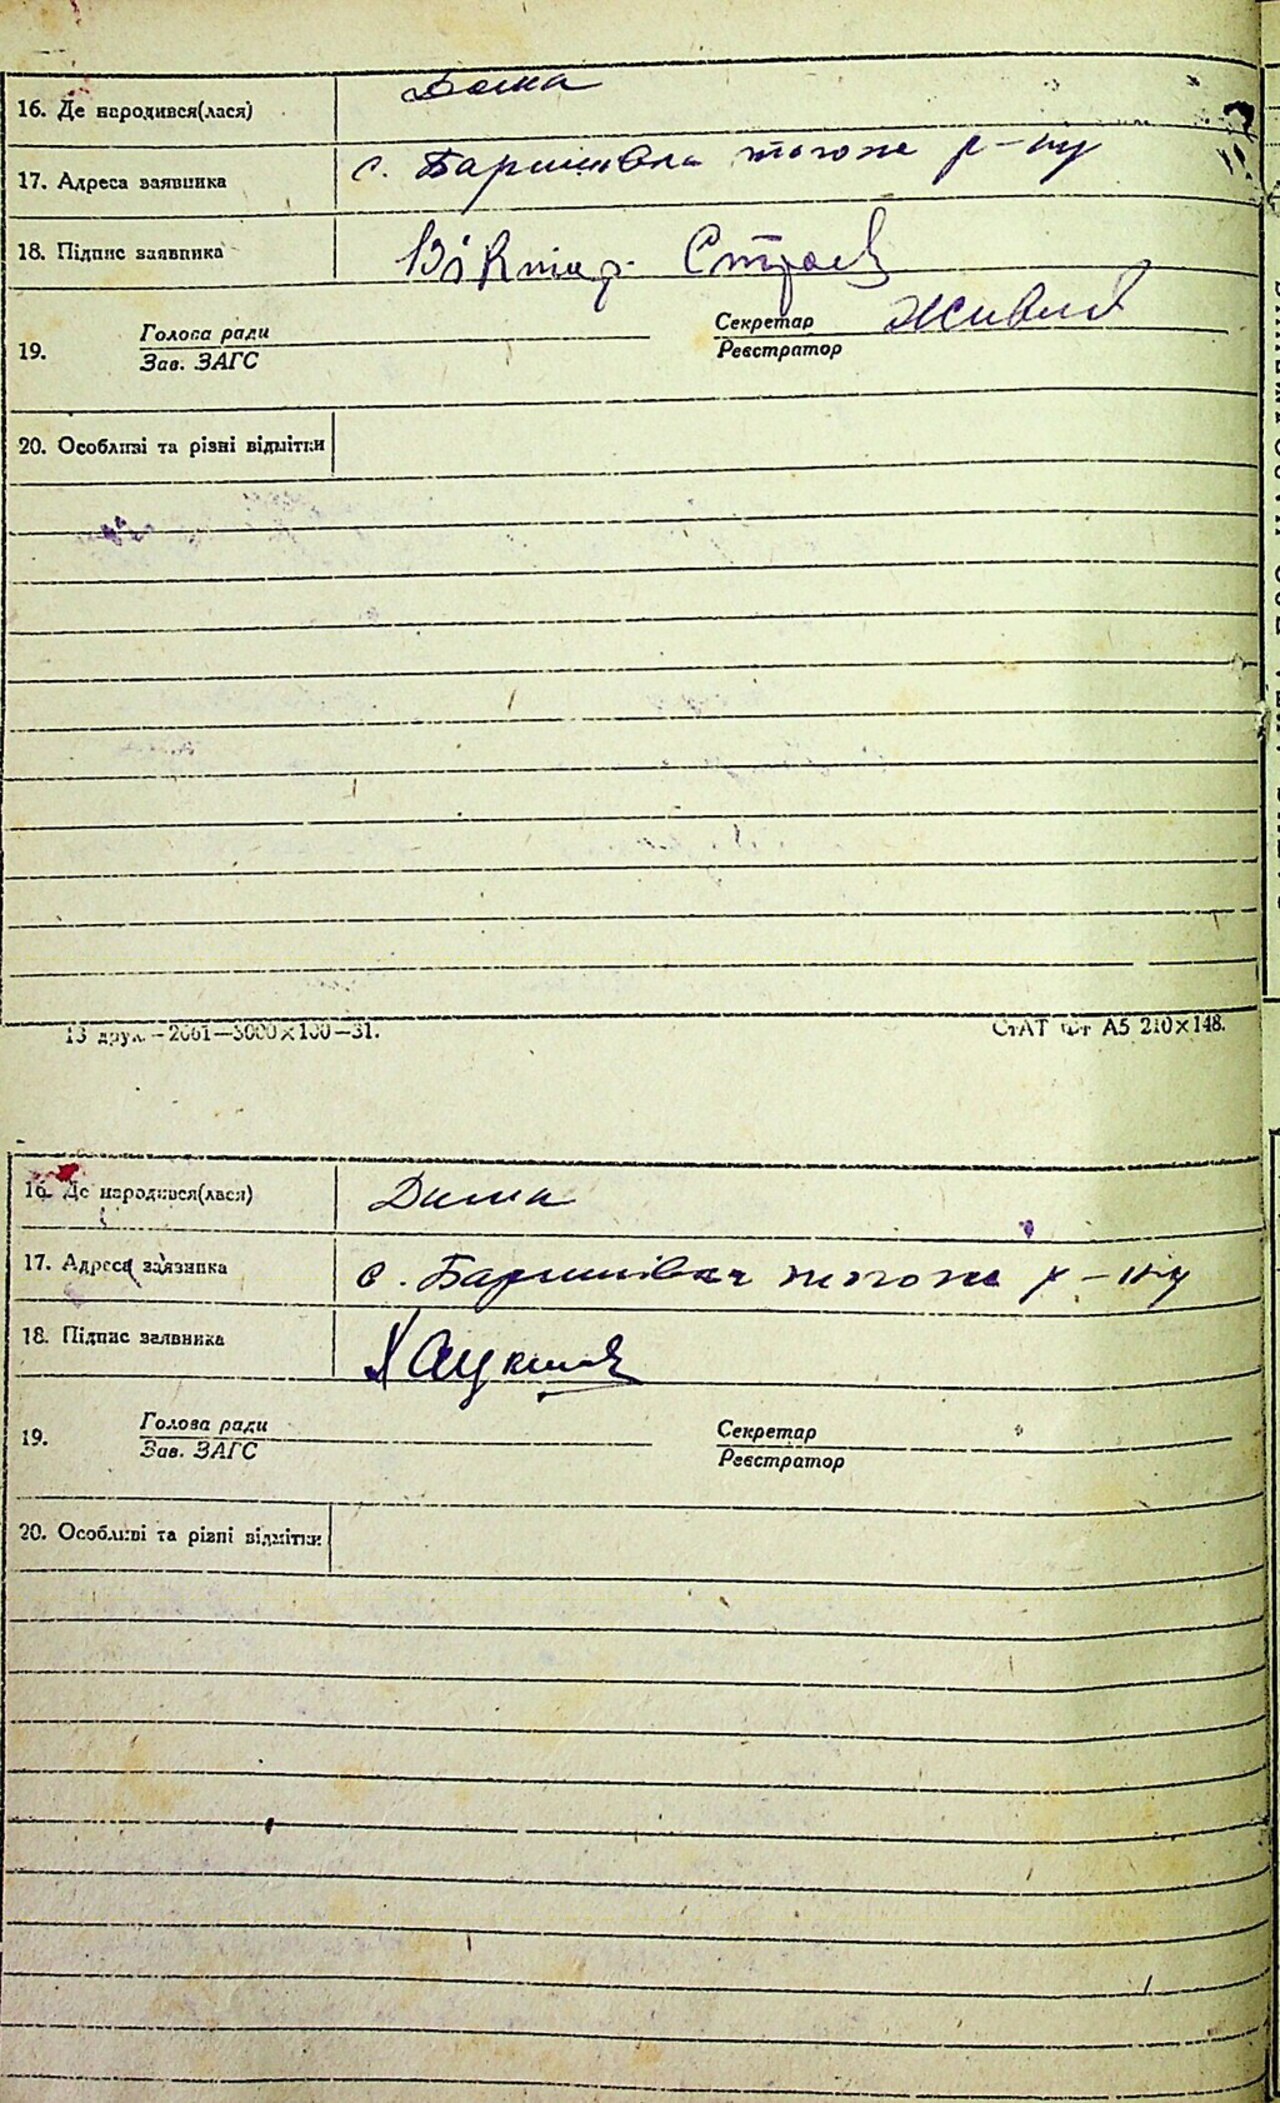 16. Де народився(лася) Дома
17. Адреса заявника с. Баришівка того же р-ну
18. Підпис заявника Віктар.
19. Голова ради Секретар
Зав. ЗАГС Реєстратор
20. Особливі та різні відмітки
13 друк.—2661—3000×100—31. СтАТ Фт А5 210×148.
16. Де народився(лася) Дома
17. Адреса заявника с. Баришівка того же р-ну
18. Підпис заявника
19. Голова ради Секретар
Зав. ЗАГС Реєстратор
20. Особливі та різні відмітки